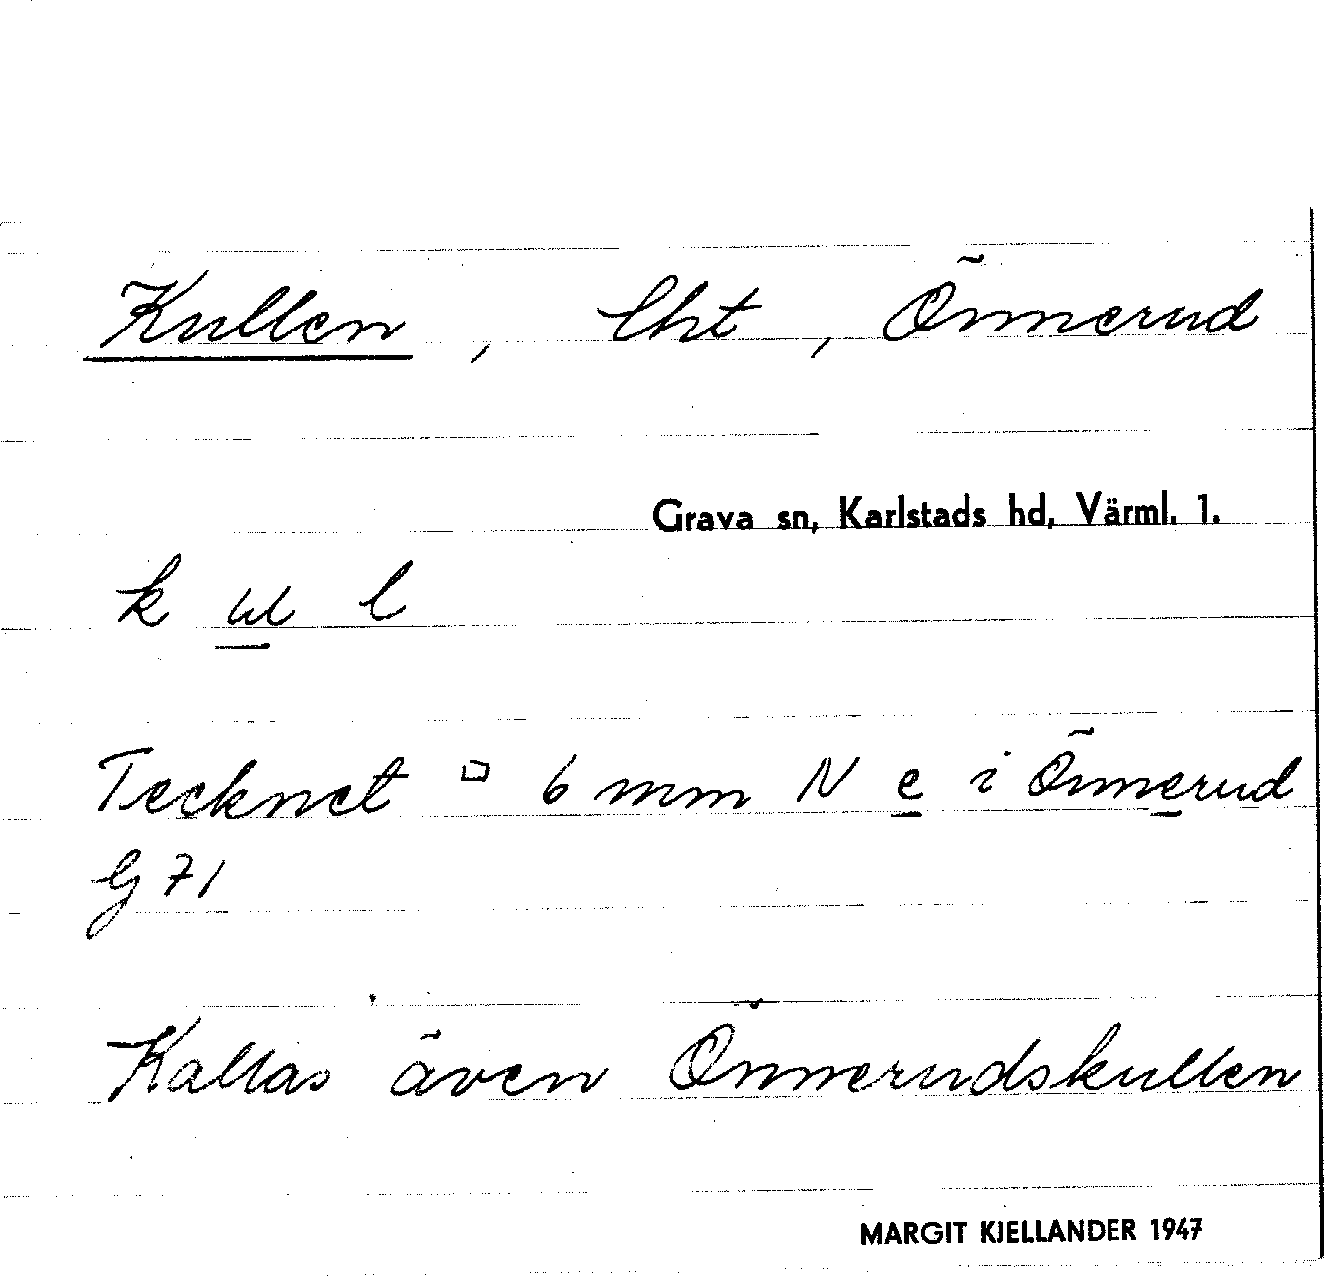 Kullen, lht, Önnerud
Grava sn, Karlstads hd, Värml. 1.
k ul l
Tecknet □ 6 mm N e i Önnerud
G 71
Kallas även Önnerudskullen
MARGIT KJELLANDER 1947